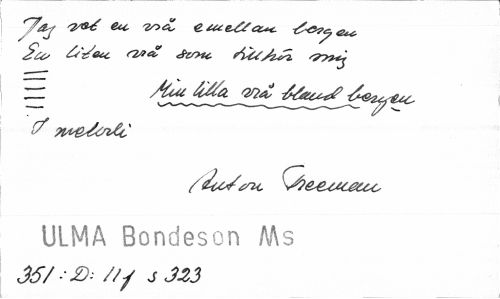 Jag vet en vrå emellan bergen
En liten vrå som tillhör mig
Min lilla vrå bland bergen
I melodi
Anton Freeman
ULMA Bondeson Ms
351:D:11f s 323